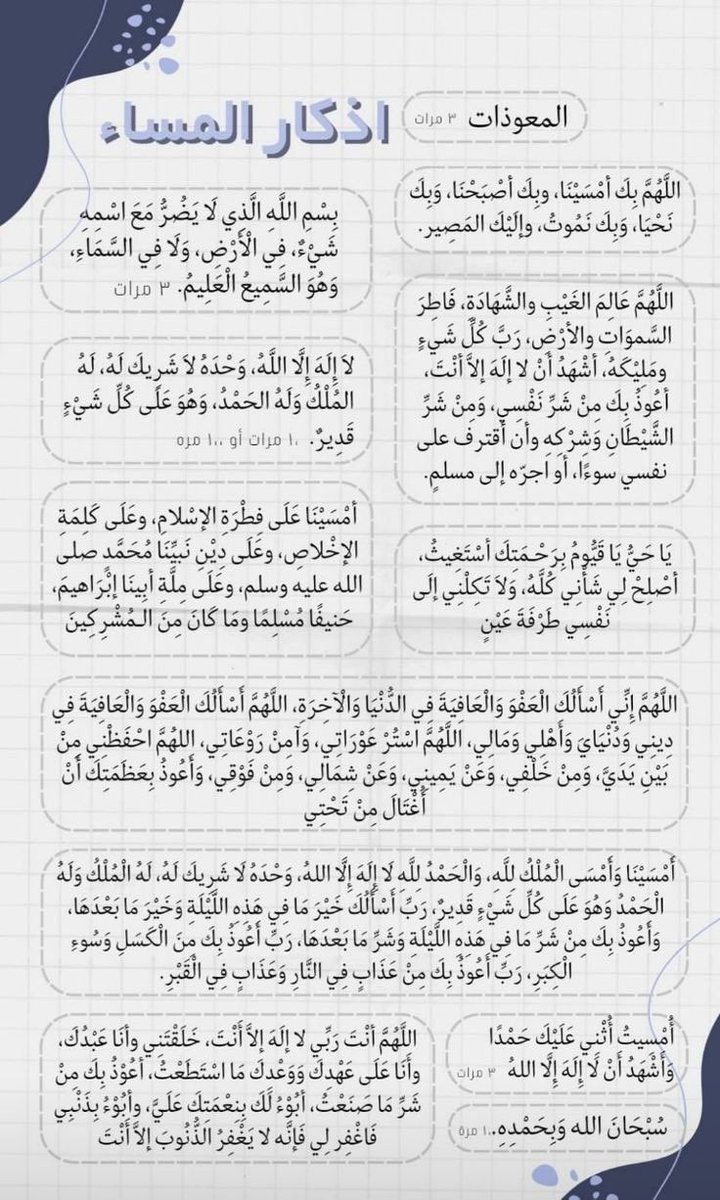 اذكار المساء
المعوذات ٣ مرات
اللَّهُمَّ بِكَ أمْسَيْنَا، وبِكَ أصْبَحْنَا، وَبِكَ
نَحْيَا، وَبِكَ نَمُوتُ، وإلَيْكَ المَصِير.
اللَّهُمَّ عَالِمَ الغَيْبِ والشَّهَادَةِ، فَاطِرَ
السَّموَاتِ والأرْضِ، رَبَّ كُلِّ شَيءٍ
ومَلِيْكَهُ، أشْهَدُ أنْ لا إلَهَ إلاَّ أنْتَ،
أعُوذُ بِكَ مِنْ شَرِّ نَفْسِي، وَمِنْ شَرِّ
الشَّيْطَانِ وَشِرْكِهِ وأن أقترف على
نفسي سوءًا، أو اجرّه إلى مسلمٍ.
يَا حَيُّ يَا قَيُّومُ بِرَحْـمَتِكَ أسْتَغِيثُ،
أصْلِحْ لِي شَأْنِي كُلَّهُ، وَلاَ تَكِلْنِي إلَى
نَفْسِي طَرْفَةَ عَيْنٍ
بِسْمِ اللَّهِ الَّذِي لَا يَضُرُّ مَعَ اسْمِهِ
شَيْءٌ، فِي الْأَرْضِ، وَلَا فِي السَّمَاءِ،
وَهُوَ السَّمِيعُ الْعَلِيمُ. ٣ مرات
لاَ إِلَهَ إِلَّا اللَّهُ، وَحْدَهُ لاَ شَرِيكَ لَهُ، لَهُ
المُلْكُ وَلَهُ الحَمْدُ، وَهُوَ عَلَى كُلِّ شَيْءٍ
قَدِيرٌ. ١٠ مرات أو ١٠٠ مره
أمْسَيْنَا عَلَى فِطْرَةِ الإسْلامِ، وعَلَى كَلِمَةِ
الإخْلاصِ، وعَلَى دِيْنِ نَبيِّنَا مُحَمَّد صلى
الله عليه وسلم، وعَلَى مِلَّةِ أبِينَا إبْرَاهيمَ،
حَنيفًا مُسْلِمًا ومَا كَانَ مِنَ الـمُشْرِكِينَ
اللَّهُمَّ إِنِّي أَسْأَلُكَ الْعَفْوَ وَالْعَافِيَةَ فِي الدُّنْيَا وَالْآخِرَةِ، اللَّهُمَّ أَسْأَلُكَ الْعَفْوَ وَالْعَافِيَةَ فِي
دِينِي وَدُنْيَايَ وَأَهْلِي وَمَالِي، اللَّهُمَّ اسْتُرْ عَوْرَاتِي، وَآمِنْ رَوْعَاتِي، اللهُمَّ احْفَظْنِي مِنْ
بَيْنِ يَدَيَّ، وَمِنْ خَلْفِي، وَعَنْ يَمِينِي، وَعَنْ شِمَالِي، وَمِنْ فَوْقِي، وَأَعُوذُ بِعَظَمَتِكَ أَنْ
أُغْتَالَ مِنْ تَحْتِي
أَمْسَيْنَا وَأَمْسَى الْمُلْكُ لِلَّهِ، وَالْحَمْدُ لِلَّهِ لَا إِلَهَ إِلَّا اللهُ، وَحْدَهُ لَا شَرِيكَ لَهُ، لَهُ الْمُلْكُ وَلَهُ
الْحَمْدُ وَهُوَ عَلَى كُلِّ شَيْءٍ قَدِيرٌ، رَبِّ أَسْأَلُكَ خَيْرَ مَا فِي هَذِهِ اللَّيْلَةِ وَخَيْرَ مَا بَعْدَهَا،
وَأَعُوذُ بِكَ مِنْ شَرِّ مَا فِي هَذِهِ اللَّيْلَةِ وَشَرِّ مَا بَعْدَهَا، رَبِّ أَعُوذُ بِكَ مِنَ الْكَسَلِ وَسُوءِ
الْكِبَرِ، رَبِّ أَعُوذُ بِكَ مِنْ عَذَابٍ فِي النَّارِ وَعَذَابٍ فِي الْقَبْرِ.
أُمْسيتُ أُثْني عَلَيْكَ حَمْدًا
وَأَشْهَدُ أَنْ لَا إِلَهَ إِلَّا اللهُ ٣ مرات
سُبْحَانَ الله وَبِحَمْدِهِ. ١٠٠ مرة
اللَّهُمَّ أنْتَ رَبِّي لا إلَهَ إلاَّ أنْتَ، خَلَقْتَنِي وأنَا عَبْدُكَ،
وأنَا عَلَى عَهْدِكَ وَوَعْدِكَ مَا اسْتَطَعْتُ، أعُوْذُ بِكَ مِنْ
شَرِّ مَا صَنَعْتُ، أبُوْءُ لَكَ بِنِعْمَتِكَ عَلَيَّ، وأبُوْءُ بِذَنْبِي
فَاغْفِر لِي فَإنَّه لا يَغْفِرُ الذُّنُوبَ إلاَّ أنْتَ